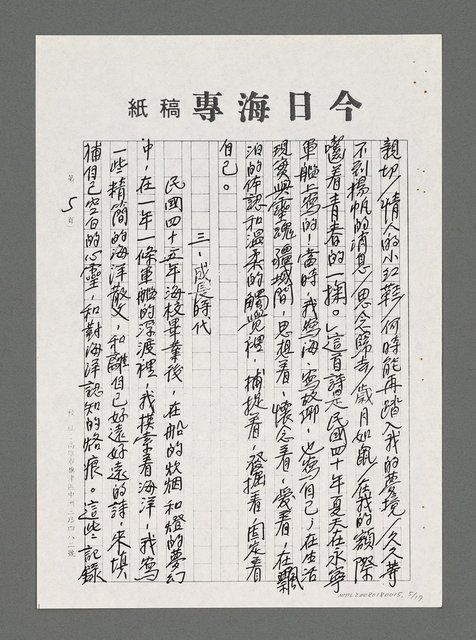 今日海專稿紙
親切/情人的小紅鞋/何時能再踏入我的夢境/久久等
不到揚帆的消息/思念歸去/歲月如鼠/在我的額際
嚙着青春的一探。」這首詩是民國四十年夏天在永寧
軍艦上寫的!當時,我寫海,寫故鄉,也寫自己,在生活
現實與靈魂疆域間,思想着,懷念着,愛着,在飄
泊的体認和溫柔的觸覺裡,捕捉着,發掘着,固定着
自己。
三、成長時代
民國四十五年海校畢業後,在船的炊烟和燈的夢幻
中,在一年一條軍艦的浮渡裡,我摸索着海洋,我寫
一些精簡的海洋散文,和離自己好遠好遠的詩,來填
補自己空白的心靈,和對海洋認知的烙痕。這些記錄
第5頁
NMTL20080180015, 5/17